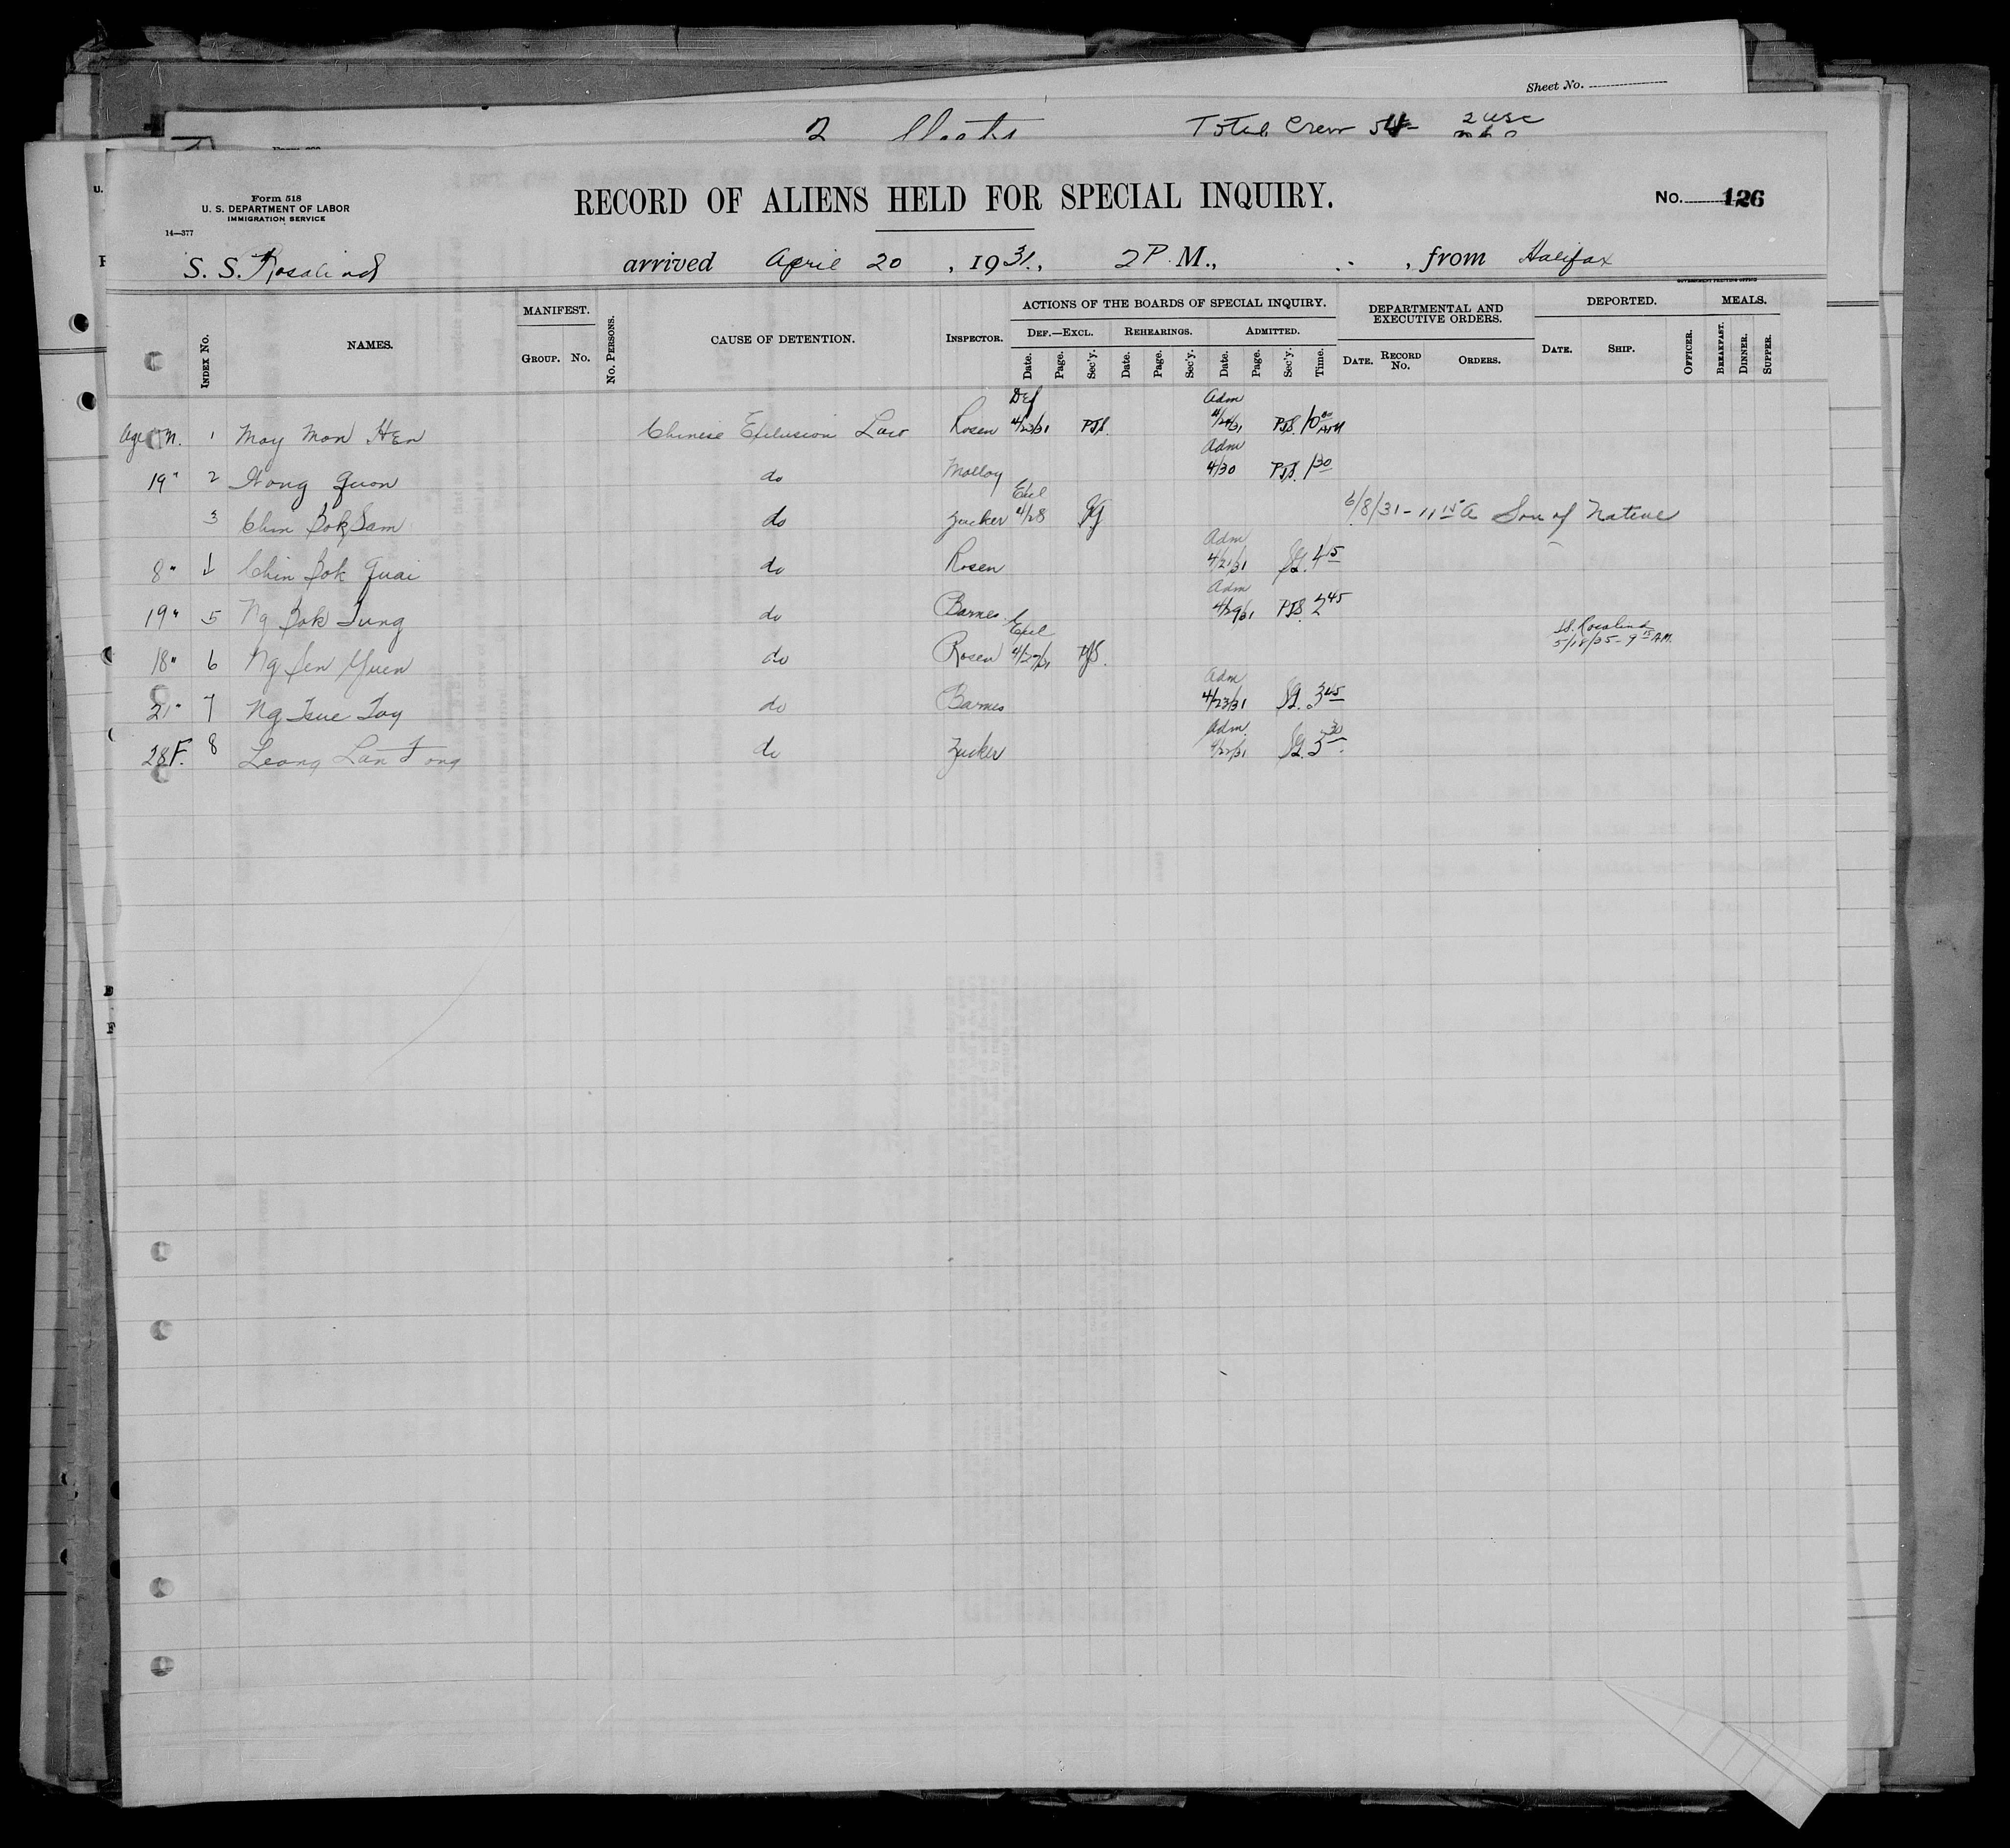 Sheet No.
2 Total Crew 54 2 USC
Form 518
U. S. DEPARTMENT OF LABOR
IMMIGRATION SERVICE
14—377
RECORD OF ALIENS HELD FOR SPECIAL INQUIRY.
No. 126
S. S. Rosalind arrived April 20, 1931, 2 P. M., from Halifax
GOVERNMENT PRINTING OFFICE
INDEX No. NAMES. MANIFEST. GROUP. No. No. PERSONS. CAUSE OF DETENTION. INSPECTOR. ACTIONS OF THE BOARDS OF SPECIAL INQUIRY. DEPARTMENTAL AND EXECUTIVE ORDERS. DEPORTED. MEALS.
DEF.—EXCL. REHEARINGS. ADMITTED.
Date. Page. Sec'y. Date. Page. Sec'y. Date. Page. Sec'y. Time. DATE. RECORD No. ORDERS. DATE. SHIP. OFFICER. BREAKFAST. DINNER. SUPPER.
Def Adm
Age M. 1 Moy Mon Hen Chinese Exclusion Law Rosen 4/23/31 PJS. 4/24/31 PJS. 10 00 AM
Adm
19 " 2 Hong Quon do Molloy 4/30 PJS. 1 30
Excl
3 Chin Bok Sam do Zucker 4/28 5/8/31 - 11 15 A Son of Native
Adm
8 " 4 Chin Bok Quai do Rosen 4/21/31 SG. 4 15
Adm
19 " 5 Ng Bok Tung do Barnes 4/29/31 PJS. 2 45
Excl SS. Rosalind
18 " 6 Ng Sen Yuen do Rosen 4/27/31 PJS. 5/18/35 - 9 15 A.M.
Adm
21 " 7 Ng Tsue Toy do Barnes 4/23/31 SG. 3 45
Adm.
28 F. 8 Leong Lan Fong do Zucker 4/22/31 SG. 3 30